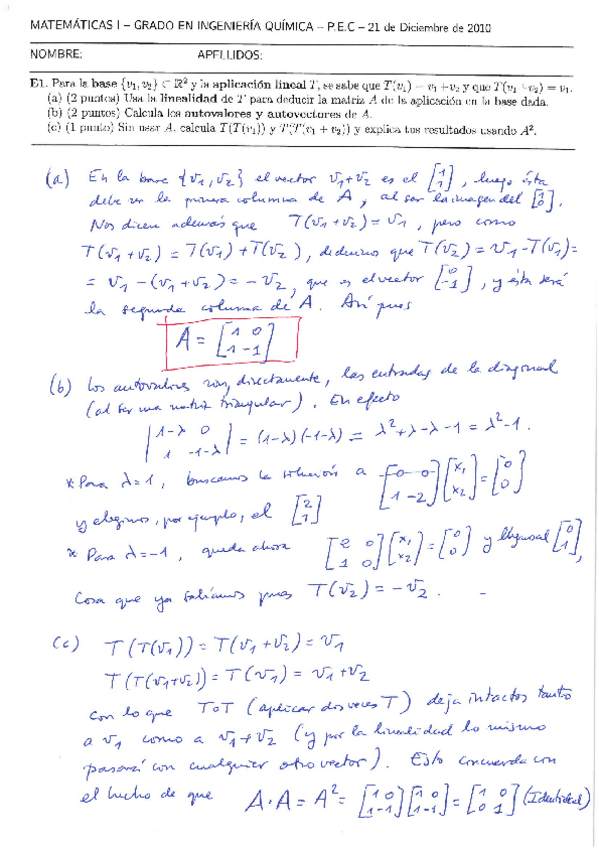 MATEMÁTICAS I – GRADO EN INGENIERÍA QUÍMICA – P.E.C – 21 de Diciembre de 2010
NOMBRE: APELLIDOS:
E1. Para la base {v₁, v₂} ⊂ ℝ² y la aplicación lineal T, se sabe que T(v₁) = v₁ + v₂ y que T(v₁ + v₂) = v₁.
(a) (2 puntos) Usa la linealidad de T para deducir la matriz A de la aplicación en la base dada.
(b) (2 puntos) Calcula los autovalores y autovectores de A.
(c) (1 punto) Sin usar A, calcula T(T(v₁)) y T(T(v₁ + v₂)) y explica tus resultados usando A².
(a) En la base {v₁, v₂} el vector v₁+v₂ es el [1 1], luego ésta
debe ser la primera columna de A, al ser la imagen del [1 0].
Nos dicen además que T(v₁+v₂) = v₁, pero como
T(v₁+v₂) = T(v₁)+T(v₂), deducimos que T(v₂) = v₁-T(v₁)=
= v₁ - (v₁+v₂) = -v₂, que es el vector [0 -1], y ésta será
la segunda columna de A. Así pues
A = [1 0 1 -1]
(b) Los autovalores son, directamente, las entradas de la diagonal
(al ser una matriz triangular). En efecto
|1-λ 0 1 -1-λ| = (1-λ)(-1-λ) = λ²+λ-λ-1 = λ²-1.
* Para λ=1, buscamos la solución a [0 0 1 -2][x₁ x₂]=[0 0]
y elegimos, por ejemplo, el [2 1]
* Para λ=-1, queda ahora [2 0 1 0][x₁ x₂]=[0 0] y [0 1],
cosa que ya sabíamos pues T(v₂) = -v₂.
(c) T(T(v₁)) = T(v₁+v₂) = v₁
T(T(v₁+v₂)) = T(v₁) = v₁+v₂
con lo que T∘T (aplicar dos veces T) deja intactos tanto
a v₁ como a v₁+v₂ (y por la linealidad lo mismo
pasará con cualquier otro vector). Esto concuerda con
el hecho de que A·A = A² = [1 0 1 -1][1 0 1 -1]=[1 0 0 1] (Identidad)